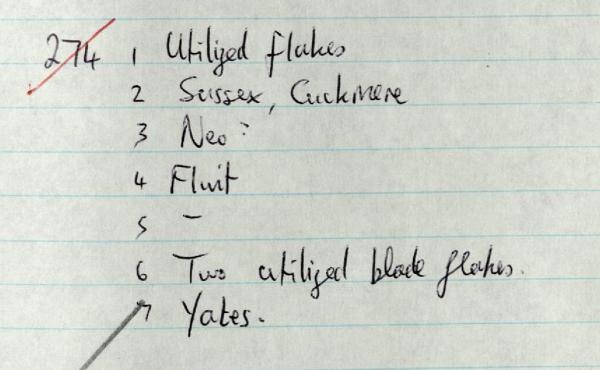 274 1 Utilized flakes
2 Sussex, Cuckmere
3 Neo:
4 Flint
5 -
6 Two utilized blade flakes.
7 Yates.